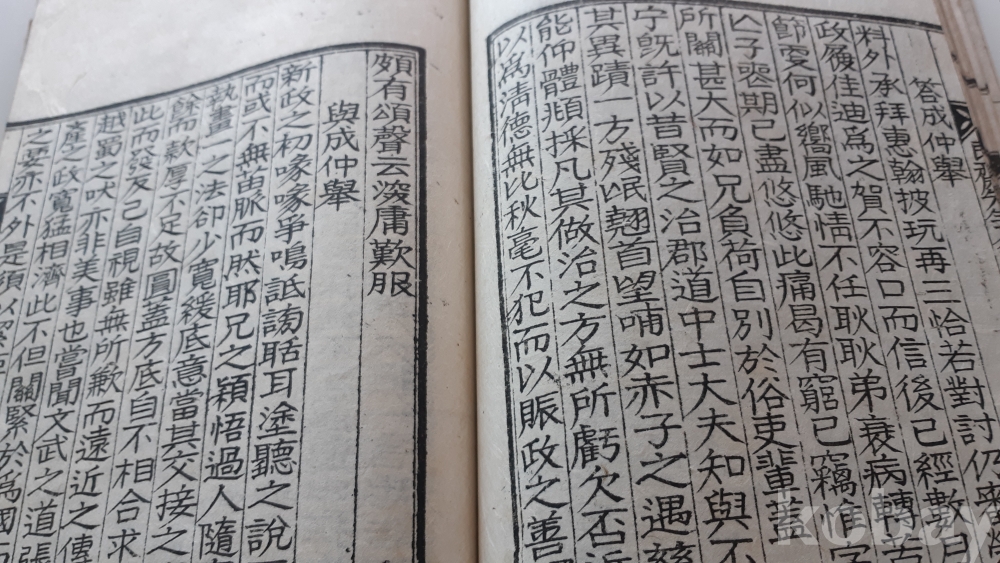 答成仲舉
料外承拜惠翰披玩再三恰若對討仍審
政履佳迪爲之賀不容口而信後已經數月
節宣何似嚮風馳情不任耿耿弟衰病轉苦
亾子喪期已盡悠悠此痛曷有窮已竊惟字
所關甚大而如兄負荷自別於俗吏輩
宁旣許以昔賢之治郡道中士大夫知與不
其異蹟一方殘氓翹首望哺如赤子之遇慈
能仰體兆採凡其做治之方無所虧欠否近
以爲淸德無比秋毫不犯而以賑政之善
頗有頌聲云深庸歎服
與成仲舉
新政之初喙喙爭鳴詆謗聒耳塗聽之說
而或不無苗脈而然耶兄之穎悟過人隨
執畫一之法卻少寬緩底意當其交接之
餘而款厚不足故圓蓋方底自不相合求
此而發友己自視雖無所歉而遠近之傳
越蜀之吠亦非美事也嘗聞文武之道張
產之政寬猛相濟此不但關緊於爲國
之要亦不外是須以
kobay